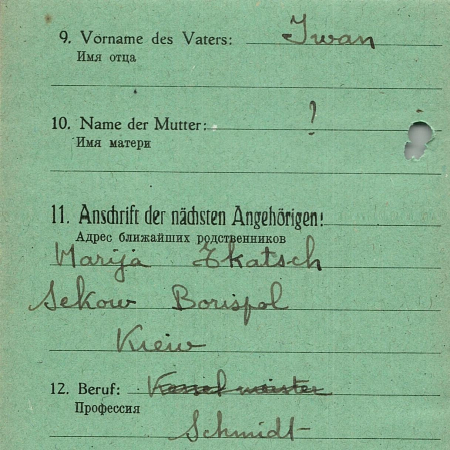 9. Vorname des Vaters: Iwan
Имя отца
10. Name der Mutter: ?
Имя матери
11. Anschrift der nächsten Angehörigen:
Адрес ближайших родственников
Marija Tkatsch
Sekow Borispol
Kiew
12. Beruf: Kesselmeister
Профессия
Schmidt